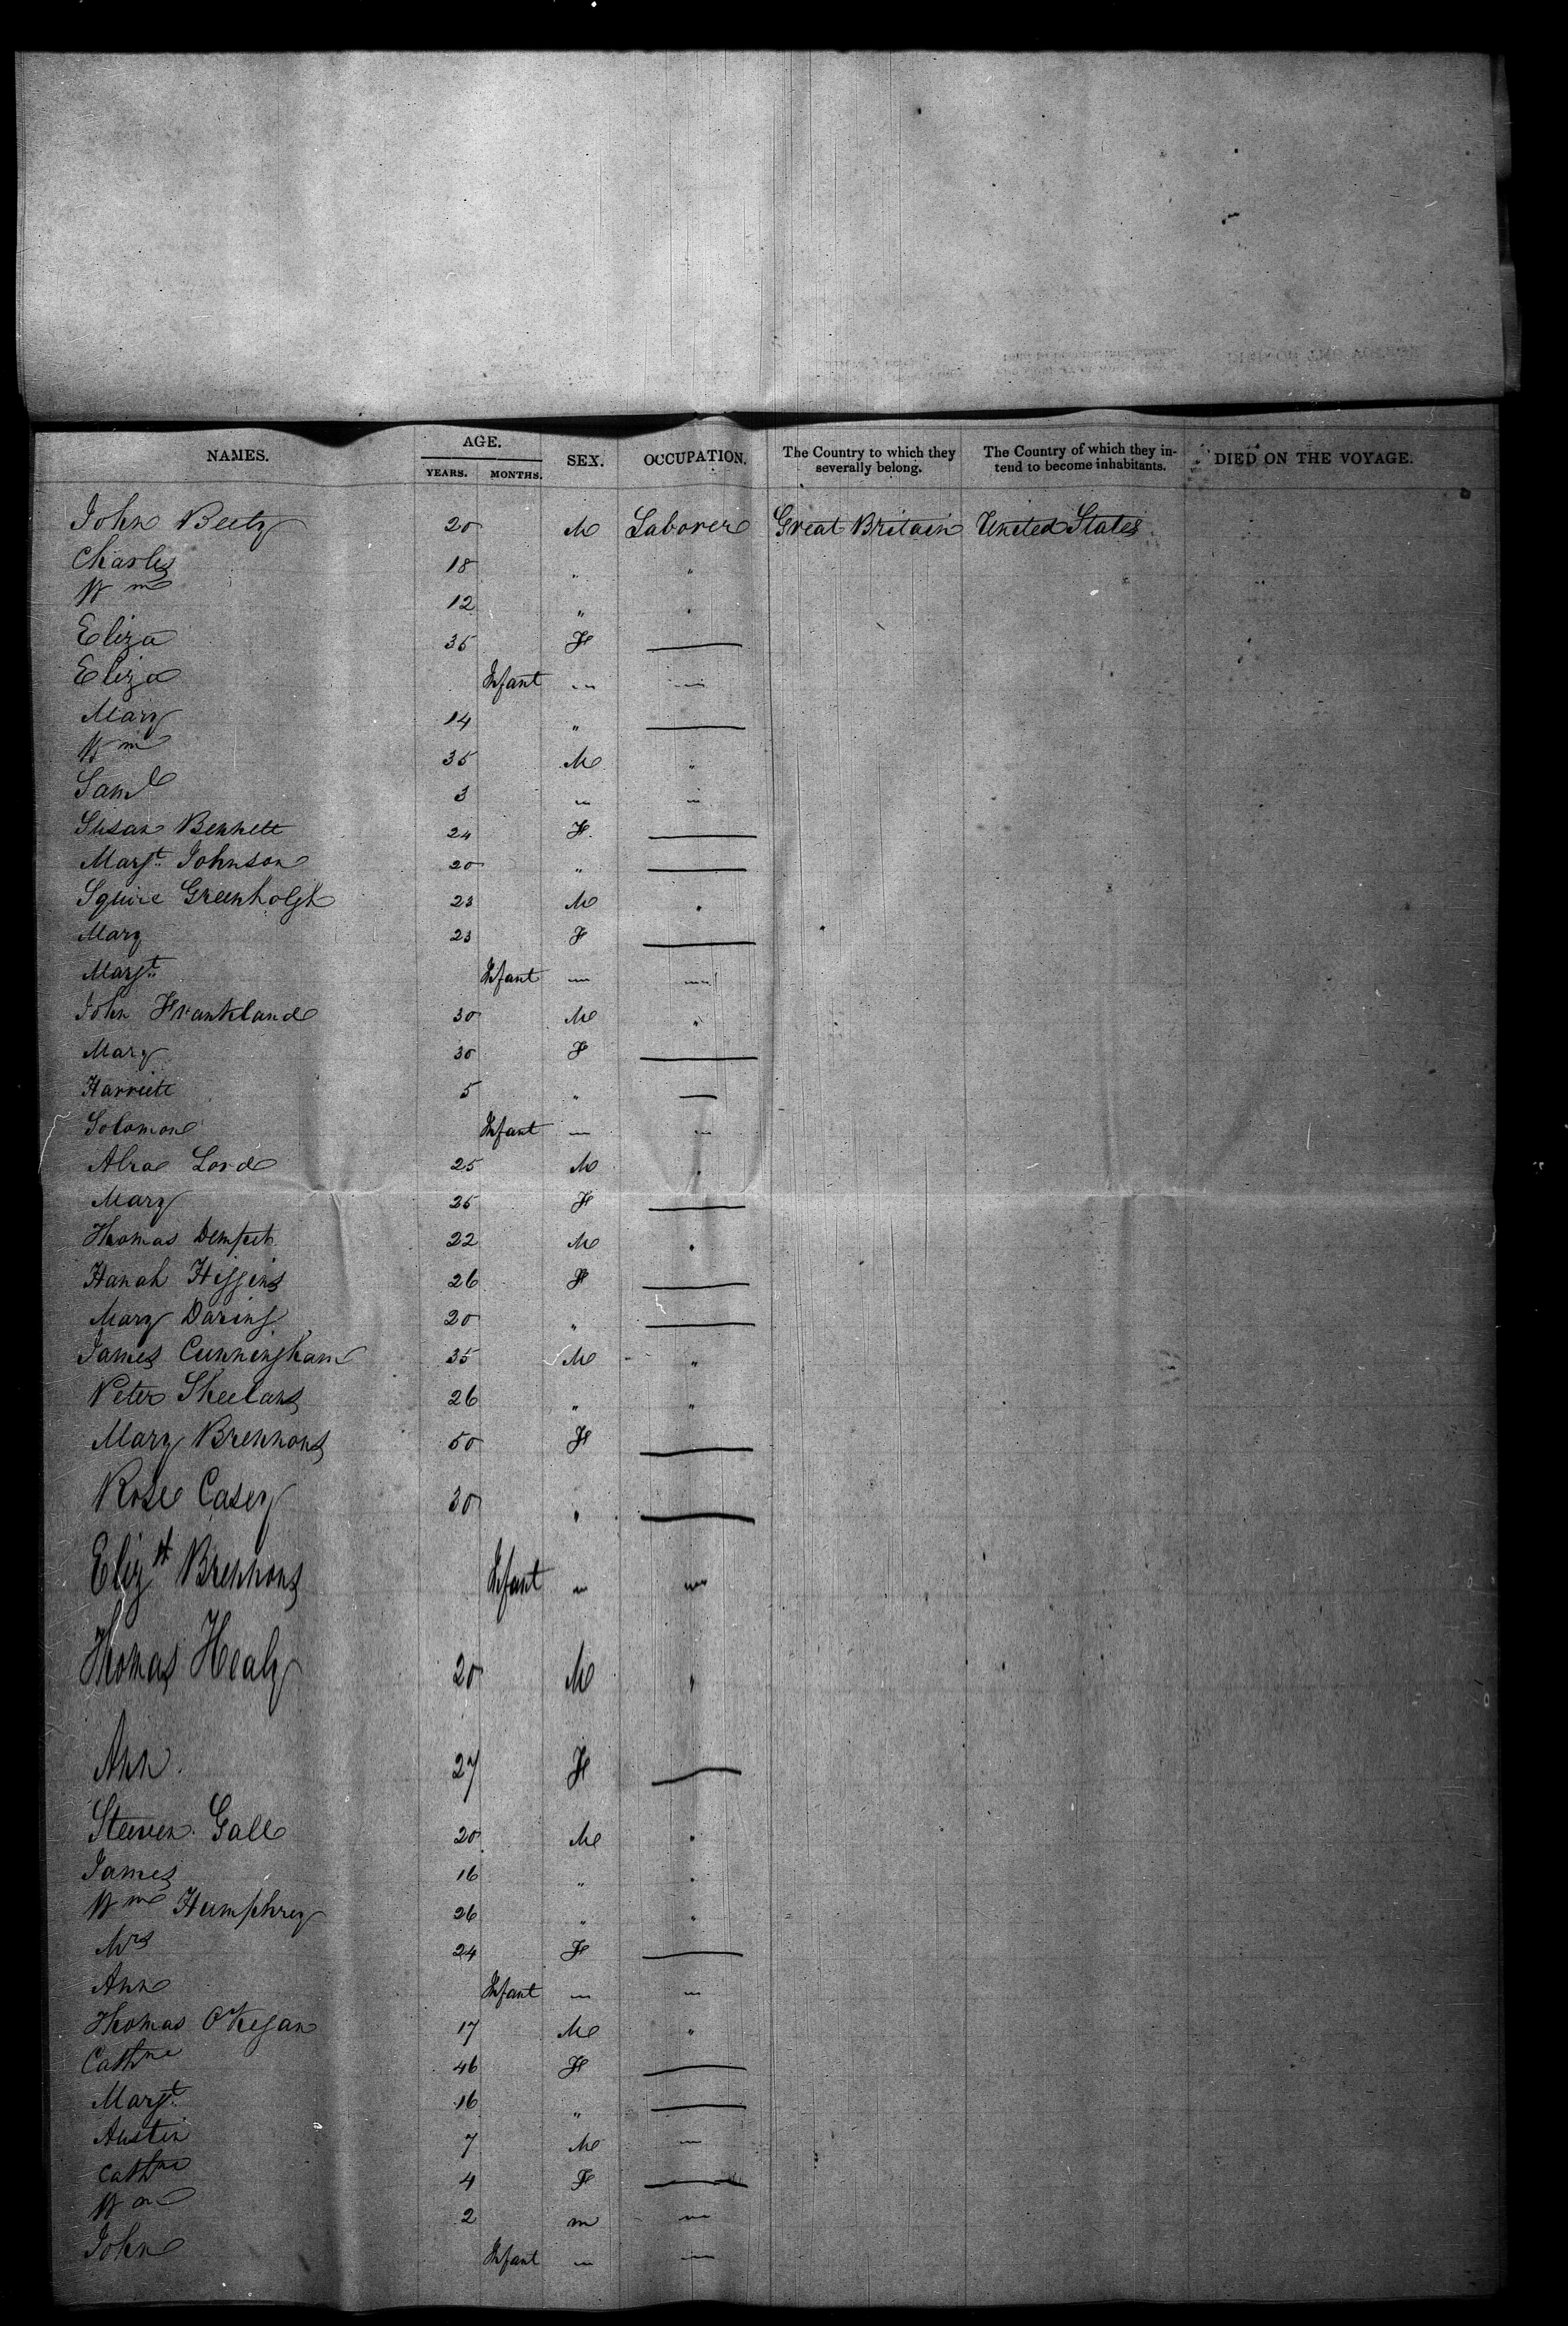 NAMES. AGE. YEARS. MONTHS. SEX. OCCUPATION. The Country to which they severally belong. The Country of which they in-tend to become inhabitants. DIED ON THE VOYAGE.
John Beety 20 M Laborer Great Britain United States
Charles 18 " "
Wm 12 " "
Eliza 35 F —
Eliza Infant — —
Mary 14 " —
Wm 35 M "
Saml 3 — —
Susan Bennett 24 F —
Margt Johnson 20 " —
Squire Greenholgh 23 M "
Mary 23 F —
Margt Infant — —
John Frankland 30 M "
Mary 30 F —
Harriett 5 " —
Solomon Infant — —
Abra Lord 25 M "
Mary 25 F —
Thomas 22 M "
Hanah Higgins 26 F —
Mary Daring 20 " —
James Cunningham 35 M "
Peter Sheelans 26 " "
Mary Brennons 50 F —
Rose Casey 30 " —
Elizt Brennons Infant — —
Thomas Healy 20 M "
Ann 27 F —
Steeven Gall 20 M "
James 16 " "
Wm Humphrey 26 " "
Mrs 24 F —
Ann Infant — —
Thomas O'Kegan 17 M "
Cathne 46 F —
Margt 16 " —
Austin 7 M —
Cathne 4 F —
Wm 2 m —
John Infant — —